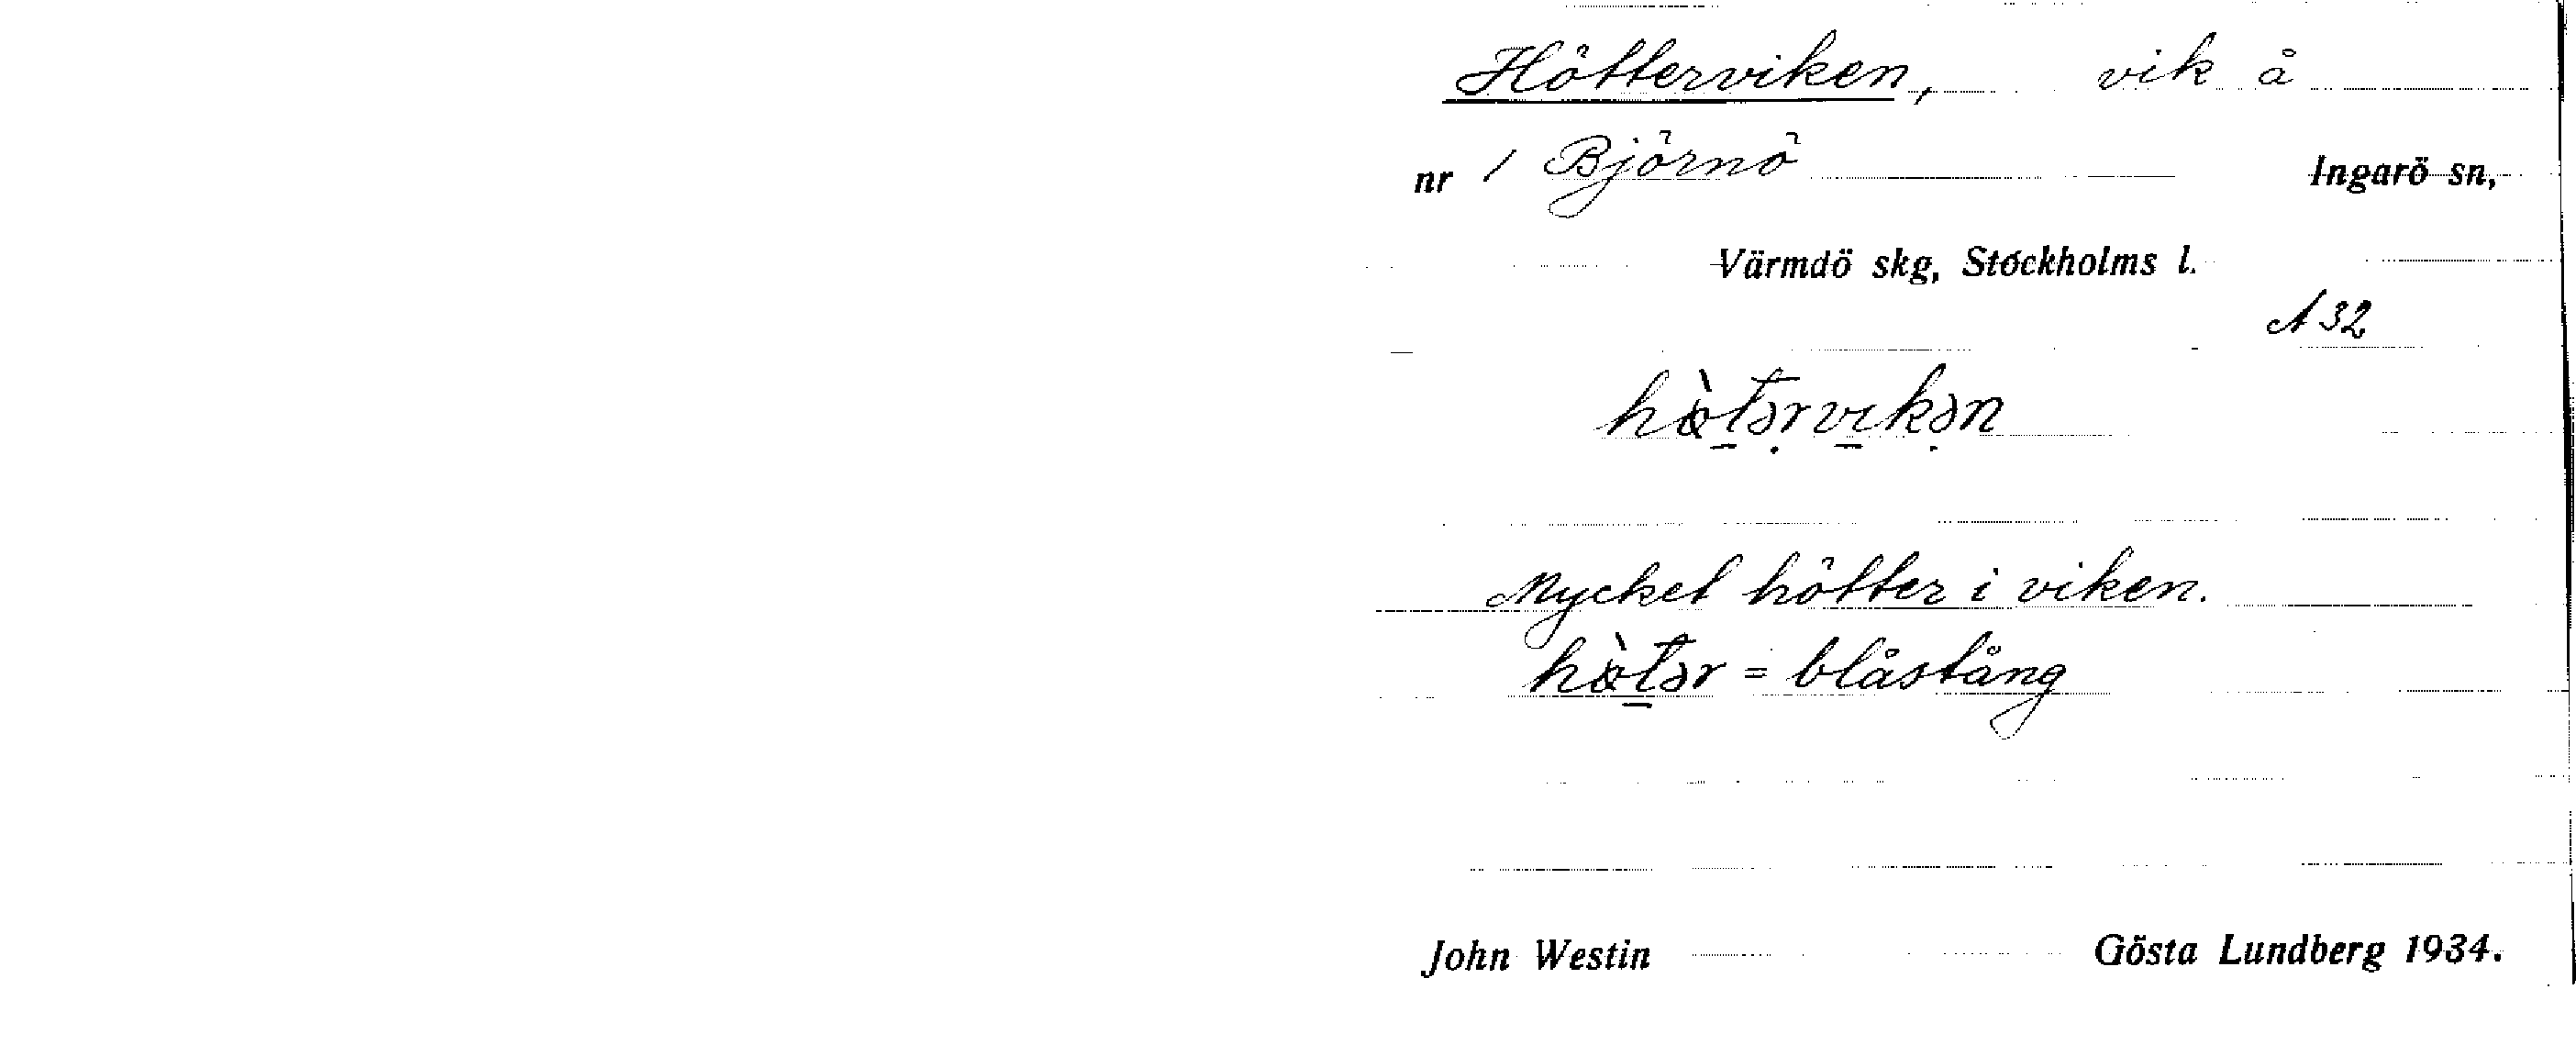 Hötterviken, vik å
nr 1 Björnö Ingarö sn,
Värmdö skg, Stockholms l.
A 32
hø̀t̠ərvi̠kən
Mycket hötter i viken.
hø̀t̠ər = blåstång
John Westin Gösta Lundberg 1934.